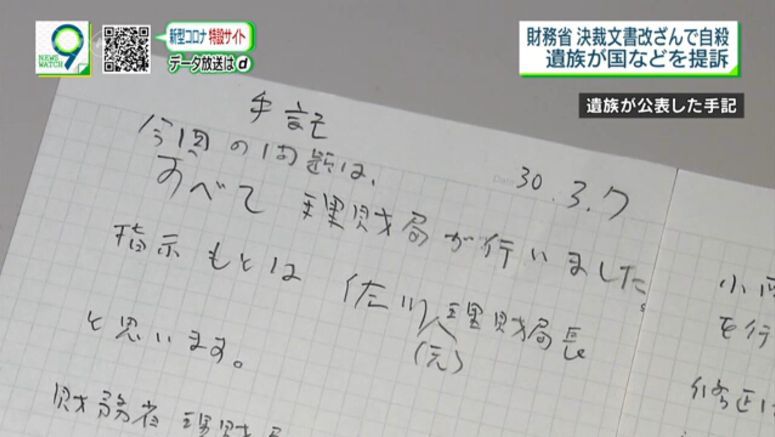 NEWS WATCH 9
新型コロナ 特設サイト
データ放送は d
財務省 決裁文書改ざんで自殺
遺族が国などを提訴
遺族が公表した手記
手記
Date 30.3.7
今回の問題は、
すべて 理財局が行いました。
指示もとは 佐川理財局長
(元)
と思います。
財務省 理財局
を行
修正